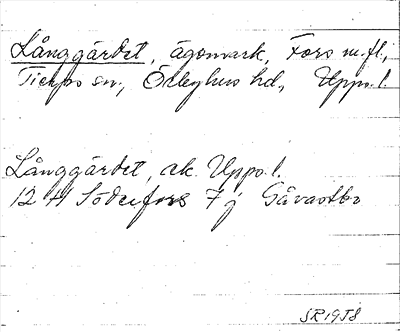 Långgärdet, ägomark, Fors m.fl.,
Tierps sn, Örbyhus hd, Upps. l.
Långgärdet, ek. Upps. l.
12 H Söderfors 7 j Gåvastbo
SR 1958